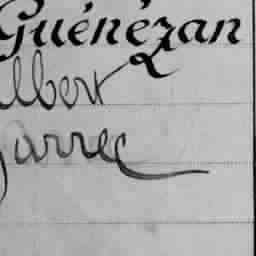 Guénézan
Albert
Jarrec